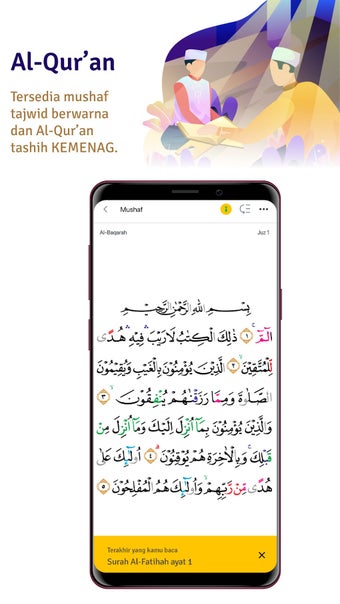 Al-Qur’an
Tersedia mushaf
tajwid berwarna
dan Al-Qur’an
tashih KEMENAG.
Mushaf
Al-Baqarah Juz 1
بِسْمِ اللّٰهِ الرَّحْمٰنِ الرَّحِيْمِ
الۤمّۤ ۝١ ذٰلِكَ الْكِتٰبُ لَا رَيْبَۛ فِيْهِۛ هُدًى
لِّلْمُتَّقِيْنَۙ ۝٢ الَّذِيْنَ يُؤْمِنُوْنَ بِالْغَيْبِ وَيُقِيْمُوْنَ
الصَّلٰوةَ وَمِمَّا رَزَقْنٰهُمْ يُنْفِقُوْنَۙ ۝٣
وَالَّذِيْنَ يُؤْمِنُوْنَ بِمَآ اُنْزِلَ اِلَيْكَ وَمَآ اُنْزِلَ مِنْ
قَبْلِكَۚ وَبِالْاٰخِرَةِ هُمْ يُوْقِنُوْنَۗ ۝٤ اُولٰۤىِٕكَ عَلٰى
هُدًى مِّنْ رَّبِّهِمْۙ وَاُولٰۤىِٕكَ هُمُ الْمُفْلِحُوْنَ ۝٥
Terakhir yang kamu baca
Surah Al-Fatihah ayat 1